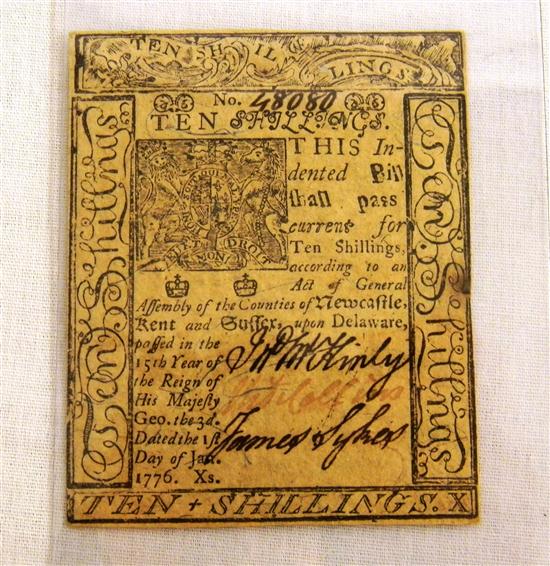 TEN SHILLINGS
No. 48080
TEN SHILLINGS.
THIS In-
dented Bill
shall pass
current for
Ten Shillings,
according to an
Act of General
Assembly of the Counties of Newcastle,
Kent and Sussex, upon Delaware,
passed in the
15th Year of
the Reign of
His Majesty
Geo. the 3d.
Dated the 1st
Day of Jan.
1776. Xs.
Jno McKinly
James Sykes
DROIT
Ten Shillings
Ten Shillings
TEN + SHILLINGS. X